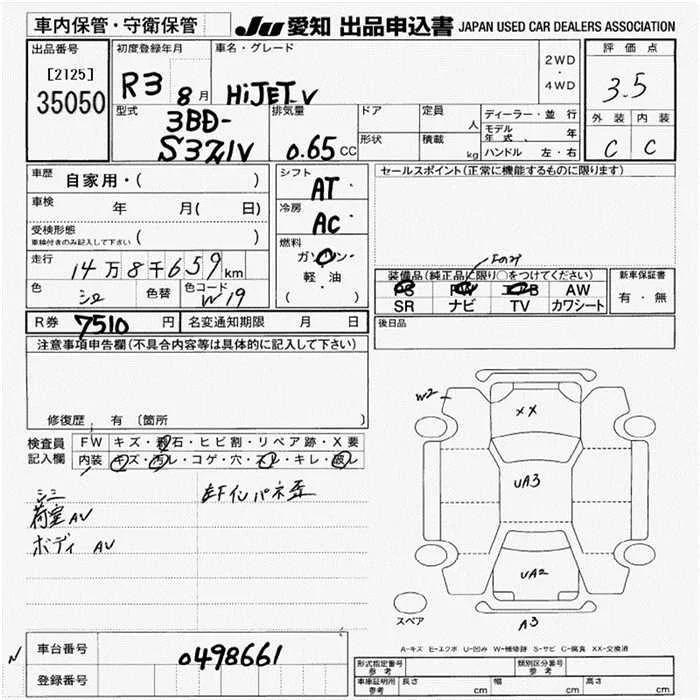 車内保管・守衛保管
JU 愛知 出品申込書 JAPAN USED CAR DEALERS ASSOCIATION
出品番号
[2125]
35050
初度登録年月
R3 8月
車名・グレード
HiJET-V
2WD
・
4WD
評価点
3.5
外装 内装
C C
型式
3BD-
S321V
排気量
0.65 CC
ドア
形状
定員 人
積載 kg
ディーラー・並行
モデル年式 年
ハンドル 左・右
車歴 自家用・( )
車検 年 月( 日)
受検形態
車検付きのみ記入して下さい ( )
走行 14万8千659km
色 シロ 色替 色コード W19
シフト
AT・
冷房
AC・
燃料
ガソリン・
軽・油
・
( )
セールスポイント(正常に機能するものに限ります)
装備品(純正品に限り○をつけてください)
PS PW エアB AW
SR ナビ TV カワシート
新車保証書
有・無
R券 7510 円 名変通知期限 月 日
後日品
注意事項申告欄(不具合内容等は具体的に記入して下さい)
修復歴 有 〔箇所 〕
検査員
記入欄
FW キズ・飛石・ヒビ割・リペア跡・X要
内装 キズ・汚レ・コゲ・穴・スレ・キレ・破レ
シミ
荷室AU
ボディ AU
左Fインパネ歪
W2
XX
UA3
UA2
A3
スペア
A-キズ E-エクボ U-凹み W-補修跡 S-サビ C-腐食 XX-交換済
車台番号 0498661
登録番号
形式指定番号
参考
類別区分番号
参考
車庫証明用
参考
長さ cm 幅 cm 高さ cm